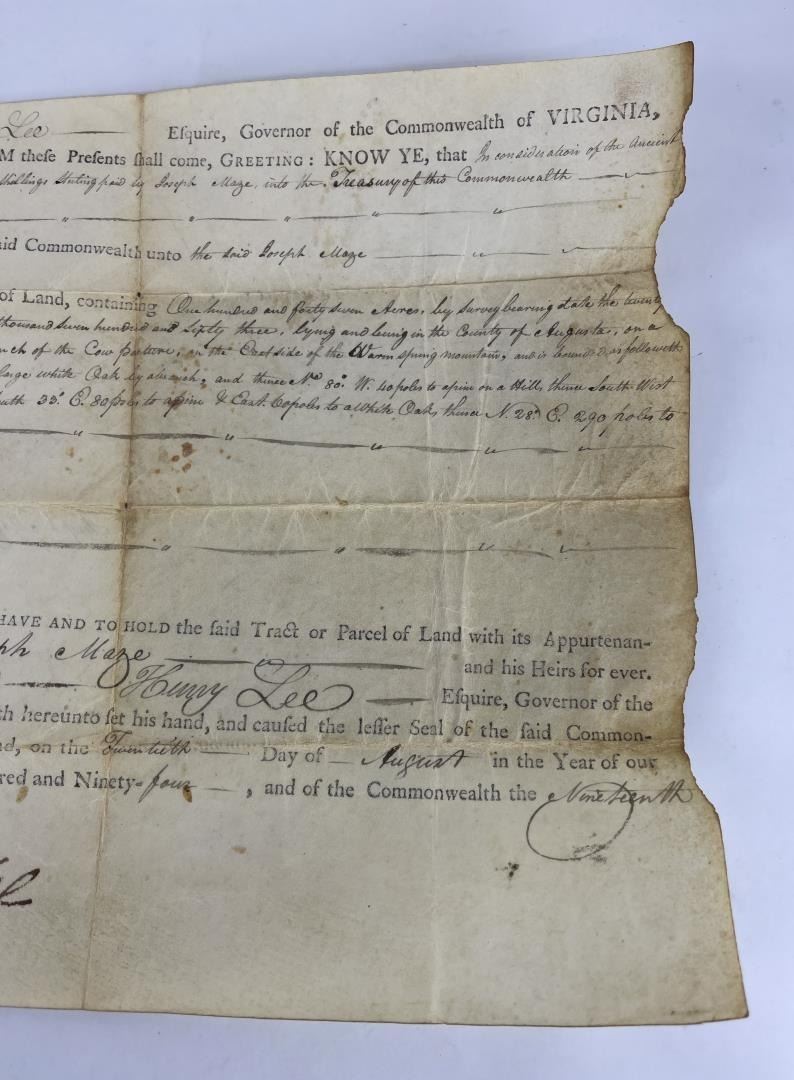 Lee Esquire, Governor of the Commonwealth of VIRGINIA,
M these Presents shall come, GREETING: KNOW YE, that In consideration of the Ancient
shillings Sterling paid by Joseph Maze, into the Treasury of this Commonwealth
aid Commonwealth unto the said Joseph Maze
of Land, containing One hundred and forty seven Acres, by survey bearing date the twenty
thousand seven hundred and sixty three, lying and being in the County of Augusta, on a
nch of the Cow pasture, on the East side of the Warm spring mountain, and is bounded, as followeth
large white Oak by a branch, and thence No. 80°. W. 40 poles to a pine on a Hill, thence South West
outh 33°. E. 80 poles to a pine & East. 60 poles to a White Oak, thence N. 28°. E. 290 poles to
HAVE AND TO HOLD the said Tract or Parcel of Land with its Appurtenan-
ph Maze and his Heirs for ever.
Henry Lee Esquire, Governor of the
th hereunto set his hand, and caused the lesser Seal of the said Common-
nd, on the Twentieth Day of August in the Year of our
red and Ninety-four, and of the Commonwealth the Nineteenth